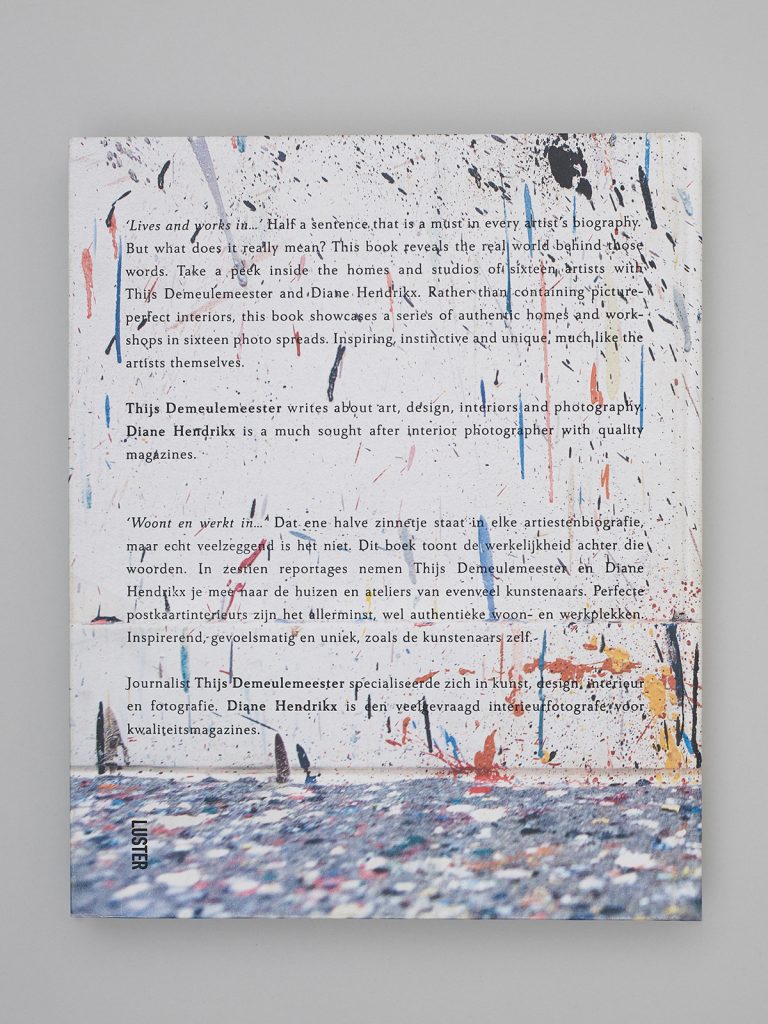 ‘Lives and works in...’ Half a sentence that is a must in every artist’s biography.
But what does it really mean? This book reveals the real world behind those
words. Take a peek inside the homes and studios of sixteen artists with
Thijs Demeulemeester and Diane Hendrikx. Rather than containing picture-
perfect interiors, this book showcases a series of authentic homes and work-
shops in sixteen photo spreads. Inspiring, instinctive and unique, much like the
artists themselves.
Thijs Demeulemeester writes about art, design, interiors and photography.
Diane Hendrikx is a much sought after interior photographer with quality
magazines.
‘Woont en werkt in...’ Dat ene halve zinnetje staat in elke artiestenbiografie,
maar echt veelzeggend is het niet. Dit boek toont de werkelijkheid achter die
woorden. In zestien reportages nemen Thijs Demeulemeester en Diane
Hendrikx je mee naar de huizen en ateliers van evenveel kunstenaars. Perfecte
postkaartinterieurs zijn het allerminst, wel authentieke woon- en werkplekken.
Inspirerend, gevoelsmatig en uniek, zoals de kunstenaars zelf.
Journalist Thijs Demeulemeester specialiseerde zich in kunst, design, interieur
en fotografie. Diane Hendrikx is een veelgevraagd interieurfotografe voor
kwaliteitsmagazines.
LUSTER